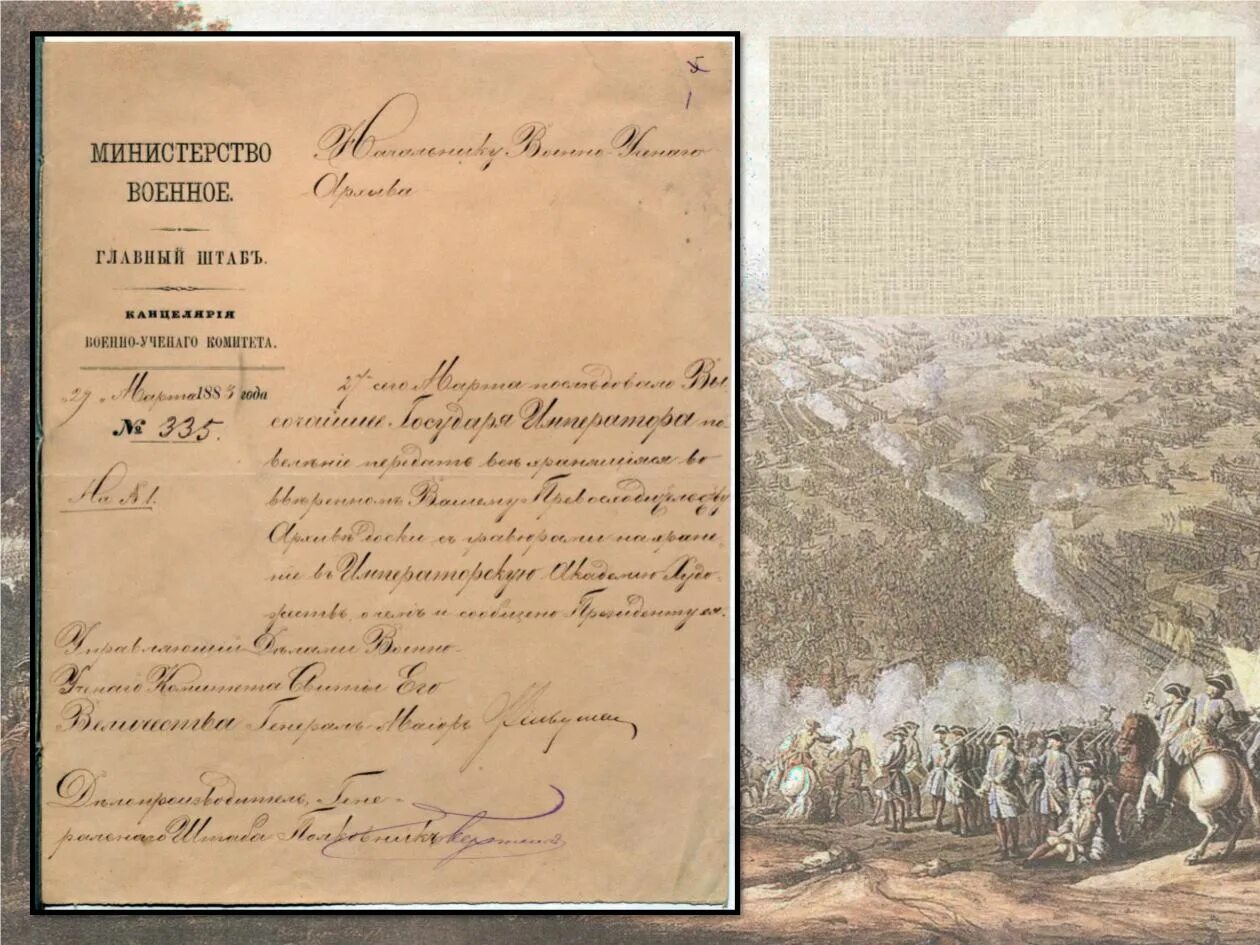 5
1
МИНИСТЕРСТВО
ВОЕННОЕ.
ГЛАВНЫЙ ШТАБЪ.
КАНЦЕЛЯРІЯ
ВОЕННО-УЧЕНАГО КОМИТЕТА.
„29 „ Марта 1883 года
№ 335.
На № 1.
Начальнику Военно-Ученаго
Архива
27 сего Марта послѣдовало Вы
сочайшее Государя Императора по
велѣніе передать всѣ хранящіяся во
ввѣренномъ Вашему Превосходительству
Архивѣ доски съ гравюрами на хране-
ніе въ Императорскую Академію Худо-
жествъ, о чемъ и сообщено Президенту ея.
Управляющій Дѣлами Военно-
Ученаго Комитета Свиты Его
Величества Генералъ-Маіоръ
Дѣлопроизводитель, Гене-
ральнаго Штаба Полковникъ